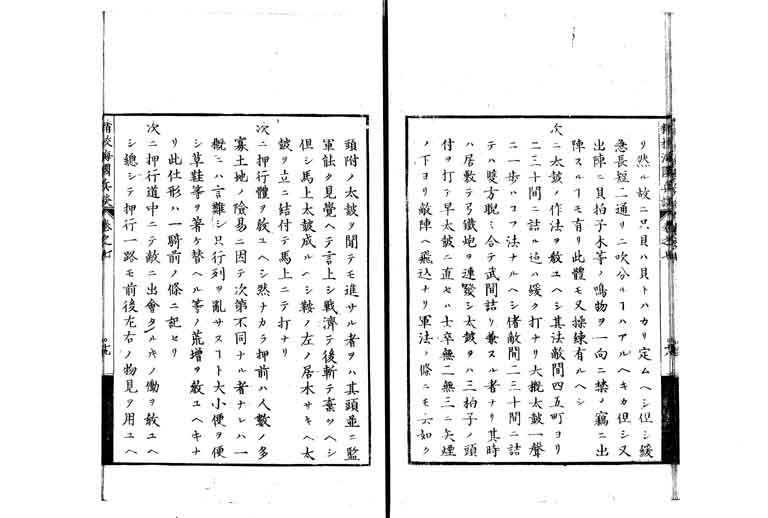 リ然ル故ニ只貝ハ貝トハカリ定ムヘシ但シ緩
急長短二通リニ吹分ルヿハアルヘキカ但シ又
出陣ニ貝拍子木等ノ鳴物ヲ一向ニ禁ノ竊ニ出
陣スルヿモ有リ此體モ又操練有ルヘシ
次ニ太鼓ノ作法ヲ敎ユヘシ其法敵間四五町ヨリ
二三十間ニ詰ル迠ハ緩ク打ナリ大概太鼓一聲
ニ一歩ハコフ法ナルヘシ偖敵間二三十間ニ詰
テハ雙方睨ミ合テ武間詰リ兼スル者ナリ其時
ハ居敷テ弓鐵炮ヲ連發シ太鼓ヲハ三拍子ノ頭
付ヲ打テ早太鼓ニ直セハ士卒無二無三ニ矢煙
ノ下ヨリ敵陣ヘ飛込ナリ軍法ノ條ニモ云如ク
頭附ノ太鼓ヲ聞テモ進サル者ヲハ其頭並ニ監
軍𪜈ク見覺ヘテ言上シ戰濟テ後斬テ棄ツヘシ
但シ馬上太鼓成ルヘシ鞍ノ左ノ居木サキヘ太
鼓ヲ立ニ結付テ馬上ニテ打ナリ
次ニ押行體ヲ敎ユヘシ然ナカラ押前ハ人數ノ多
寡土地ノ險易ニ因テ次第不同ナル者ナレハ一
概ニハ言難シ只行列ヲ亂サスヿト大小便ヲ便
シ草鞋等ヲ著ケ替ヘル等ノ荒増ヲ敎ユヘキナ
リ此仕形ハ一騎前ノ條ニ記セリ
次ニ押行道中ニテ敵ニ出會タル𪜈ノ働ヲ敎ユヘ
シ總シテ押行一路モ前後左右ノ物見ヲ用ユヘ
精校海國兵談
卷之七